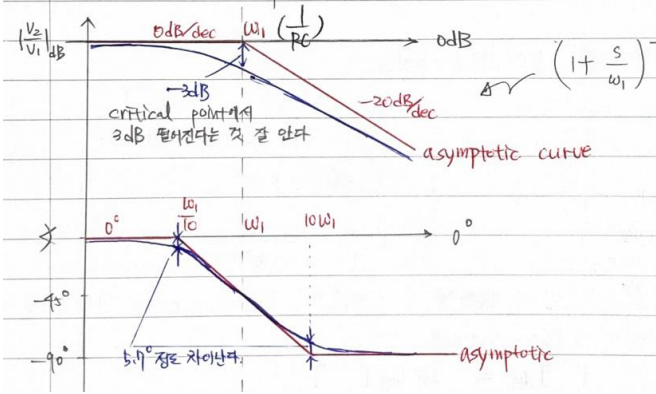 |V₂/V₁|dB
0dB/dec
ω₁ (1/RC)
0dB
-3dB
critical point에서
3dB 떨어진다는 것 잘 안다
-20dB/dec
(1 + s/ω₁)⁻
asymptotic curve
∠
0°
ω₁/10
ω₁
10ω₁
0°
-45°
-90°
5.7° 정도 차이난다.
asymptotic